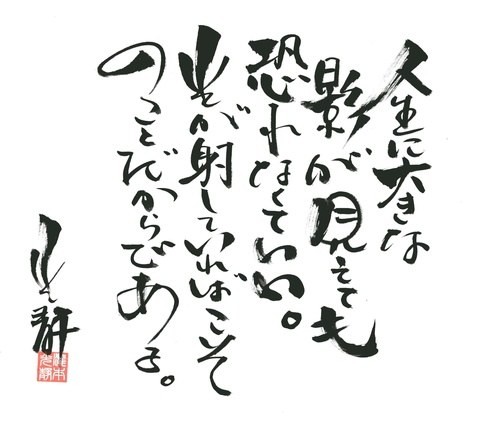 人生に大きな
影が見えても
恐れなくていい。
光が射していればこそ
のことだからである。
光静